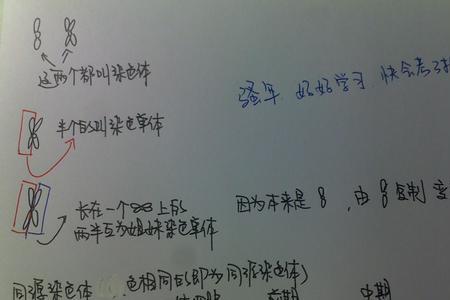 这两个都叫染色体
骚年,好好学习,快会考了
半个的叫染色单体
长在一个 上的
两半互为姐妹染色单体
因为本来是 ,由 复制
同源染色体 色相同的即为同源染色体)
前期 中期